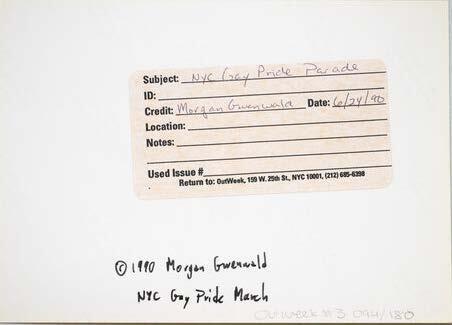 Subject: NYC Gay Pride Parade
ID:
Credit: Morgan Gwenwald Date: 6/24/90
Location:
Notes:
Used Issue #
Return to: OutWeek, 159 W. 25th St., NYC 10001, (212) 685-6398
© 1990 Morgan Gwenwald
NYC Gay Pride March
Outweek #3 094/180